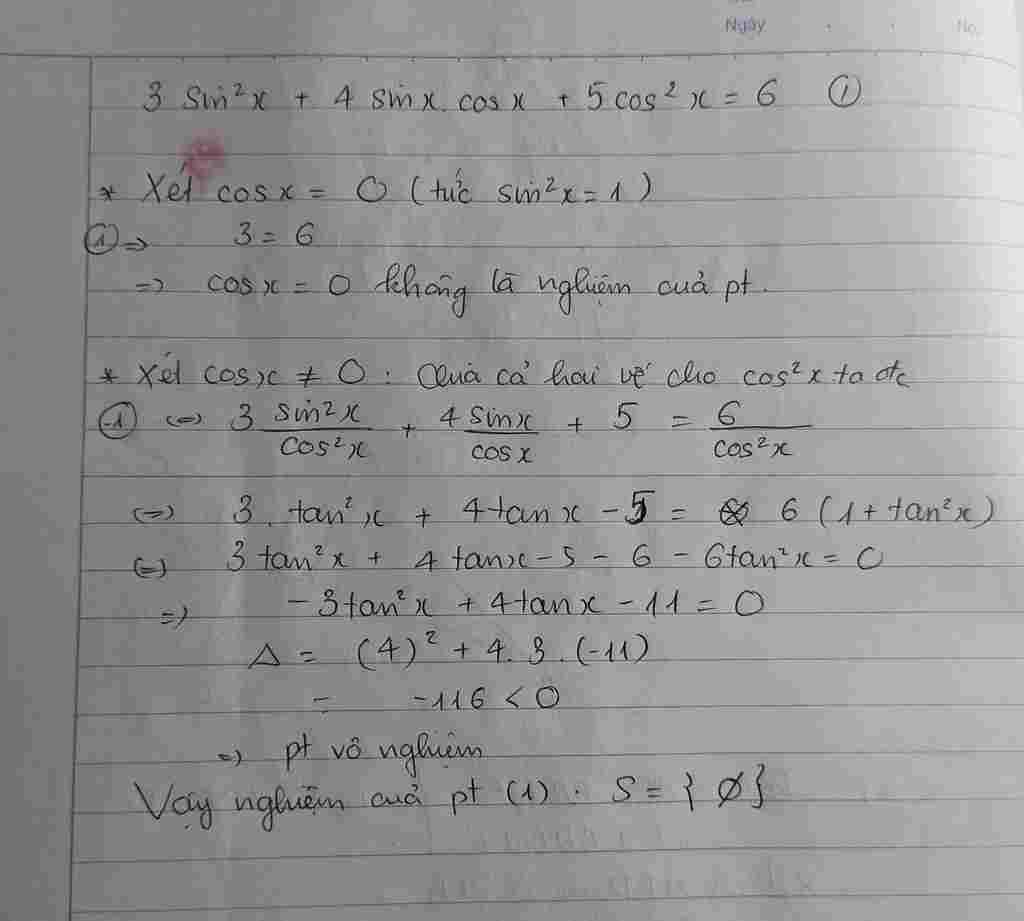 Ngày . . No.
3 sin²x + 4 sinx. cosx + 5 cos²x = 6 ①
* Xét cosx = 0 (tức sin²x = 1)
① => 3 = 6
=> cosx = 0 không là nghiệm cuả pt.
* Xét cosx ≠ 0 : Chia cả hai vế cho cos²x ta đc
① <=> 3 sin²x/cos²x + 4 sinx/cosx + 5 = 6/cos²x
<=> 3. tan²x + 4tanx - 5 = 6 (1 + tan²x)
<=> 3tan²x + 4 tanx - 5 - 6 - 6tan²x = 0
=> -3tan²x + 4tanx - 11 = 0
Δ = (4)² + 4. 3. (-11)
= -116 < 0
=> pt vô nghiệm
Vậy nghiệm cuả pt (1) . S = { ∅ }